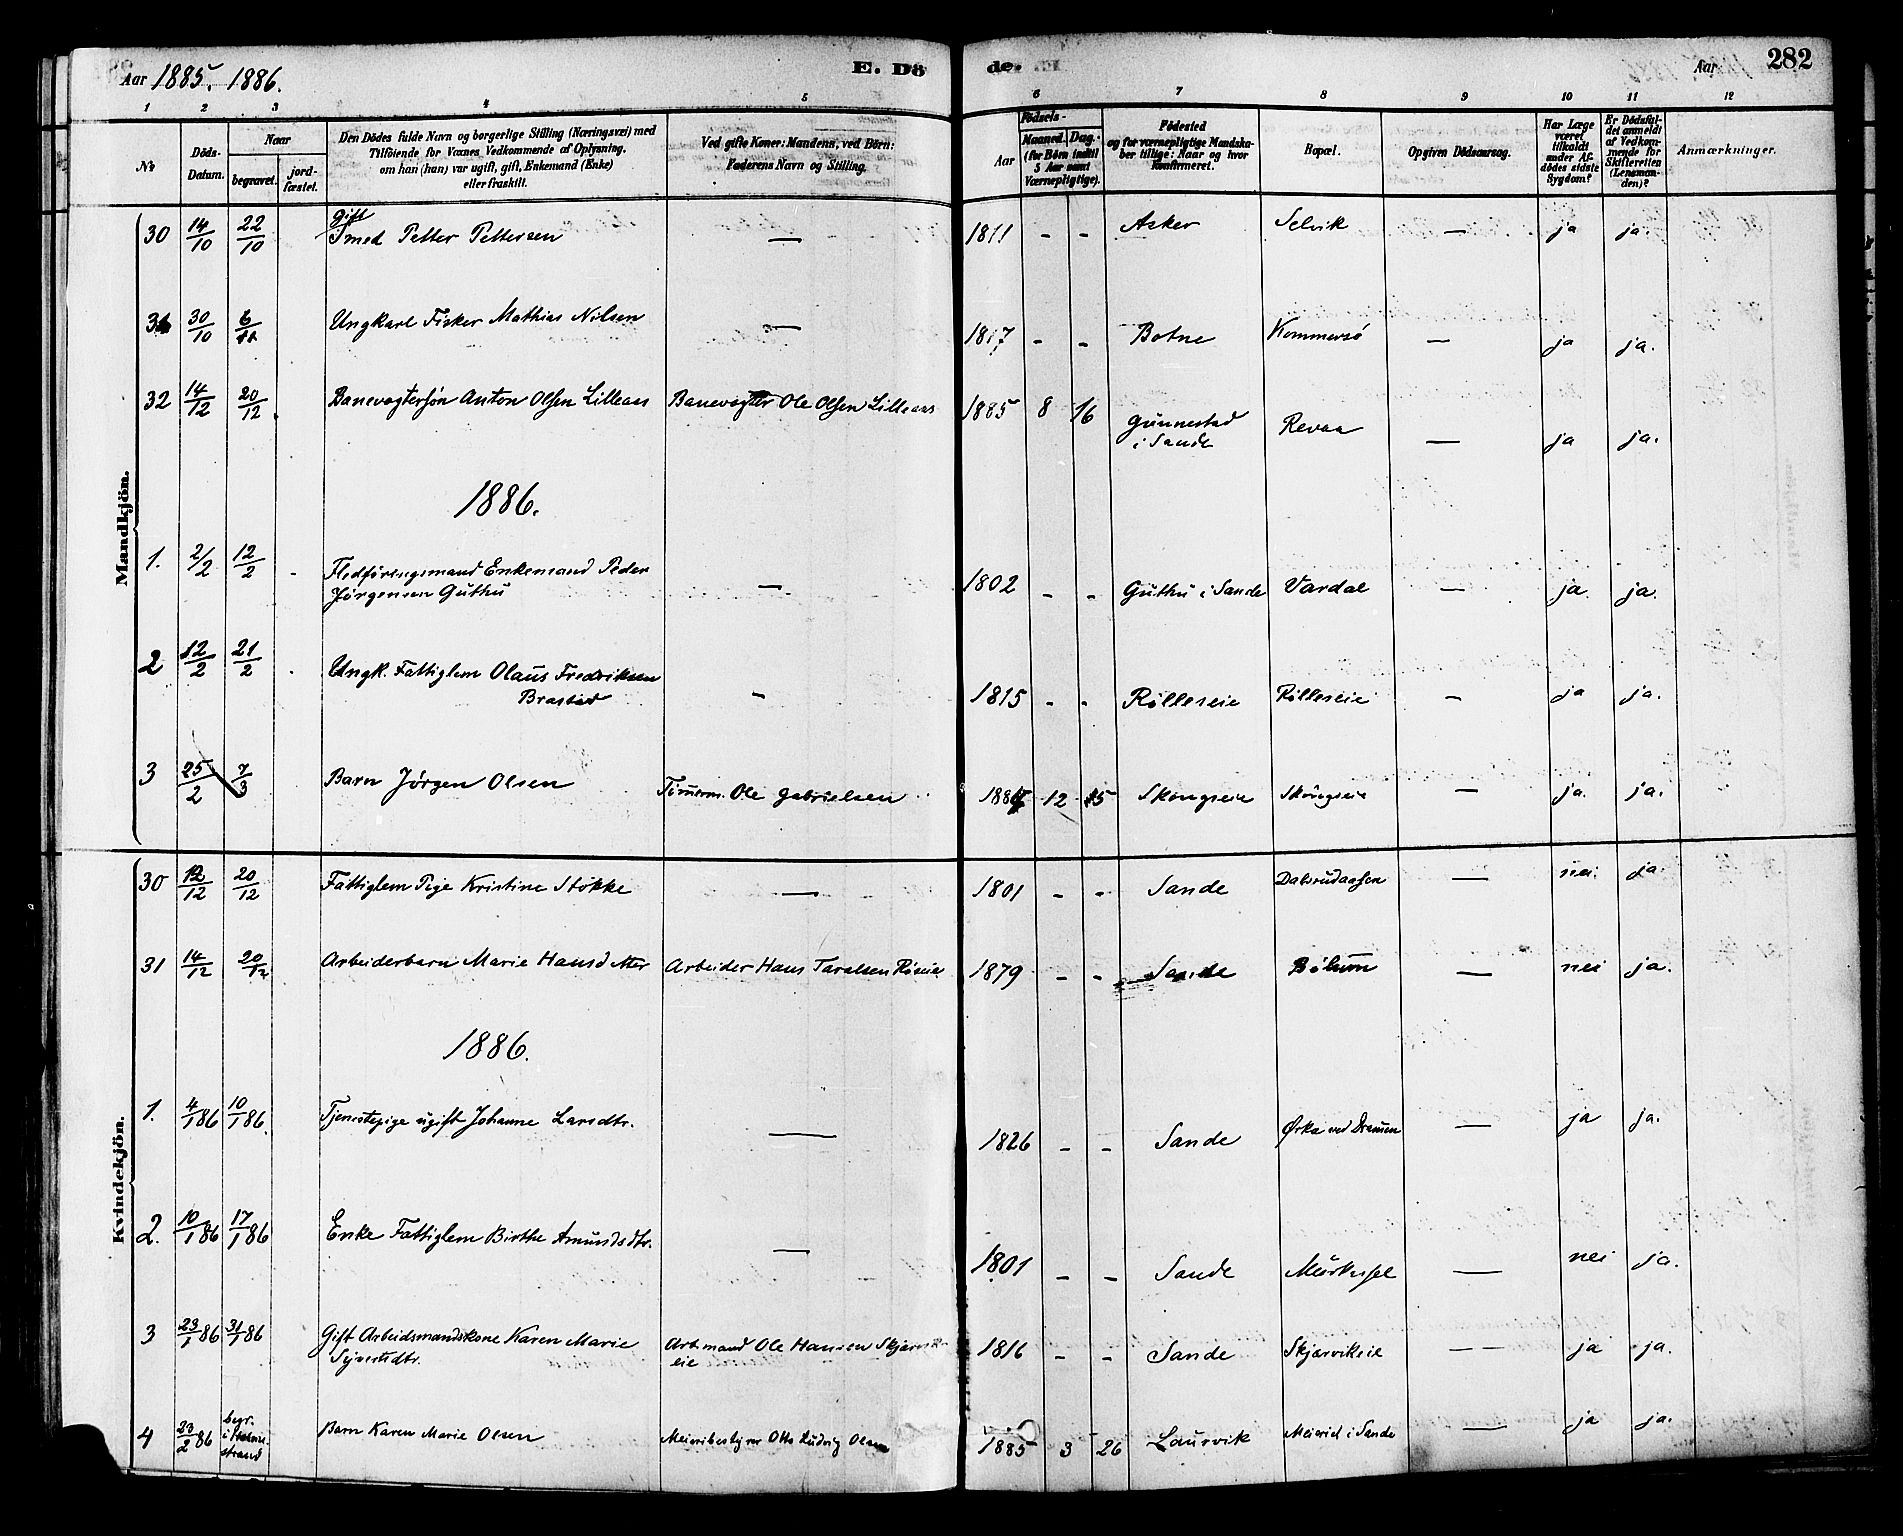 Aar 1885. 1886. E. Dö de. Aar 282
1 2 3 4 5 6 7 8 9 10 11 12
No Döds-Datum. Naar begravet. jord-fæstet. Den Dödes fulde Navn og borgerlige Stilling (Næringsvei) med Tilföiende for Voxnes Vedkommende af Oplysning, om han (hun) var ugift, gift, Enkemand (Enke) eller fraskilt. Ved gifte Koner: Mandens, ved Börn: Faderens Navn og Stilling. Födsels- Aar Maaned. Dag. (for Börn indtil 5 Aar samt Værnepligtige). Födested og for værnepligtige Mandskaber tillige: Naar og hvor Konfirmeret. Bopæl. Opgiven Dödsaarsag. Har Læge været tilkaldt under Afdödes sidste Sygdom? Er Dödsfaldet anmeldt af Vedkommende for Skifteretten (Lensmanden)? Anmærkninger.
Mandkjön.
30 14/10 22/10 gift Smed Petter Pettersen — 1811 - - Asker Selvik — ja ja.
31 30/10 6/11 Ungkarl Fisker Mathias Nilsen — 1817 - - Botne Kommersö — ja ja.
32 14/12 20/12 Banevogtersön Anton Olsen Lilleaas Banevogter Ole Olsen Lilleaas 1885 8 16 Gunnestad i Sande Revaa — ja ja.
1886.
1. 2/2 12/2 Fledføringsmand Enkemand Peder Jørgensen Guthu — 1802 - - Guthu i Sande Vardal — ja. ja.
2 12/2 21/2 Ungk. Fattiglem Olaus Fredriksen Brastad - 1815 - - Rölleseie Rölleseie — ja ja.
3 25/2 7/3 Barn Jörgen Olsen Tömerm. Ole Gabrielsen 12 Skongseie Skongseie — ja. ja.
Kvindekjön.
30 12/12 20/12 Fattiglem Pige Kristine Stokke — 1801 - - Sande — nei. ja.
31 14/12 20/12 Arbeiderbarn Marie Hansdtter Arbeider Hans Taralsen 1879 - - Sande Bölum — nei ja.
1886.
1. 4/1 86 10/1 86. Tjenestepige ugift Johanne Larsdtr. — 1826 - - Sande Ørka ved Dramen — ja ja.
2. 10/1 86 17/1 86 Enke Fattiglem Birthe Amundsdtr. — 1801 - - Sande — nei ja.
3 23/1 86 31/1 86 Gift Arbeidsmandskone Karen Marie Syversdtr. Arb.mand Ole Hansen 1816 - - Sande Skjærvikeie — — ja ja.
4 23/2 86 begr. i Holmestrand Barn Karen Marie Olsen Meieribestyrer Otto Ludvig Olsen 1885 3 26 Laurvik Meieriet i Sande — ja ja.